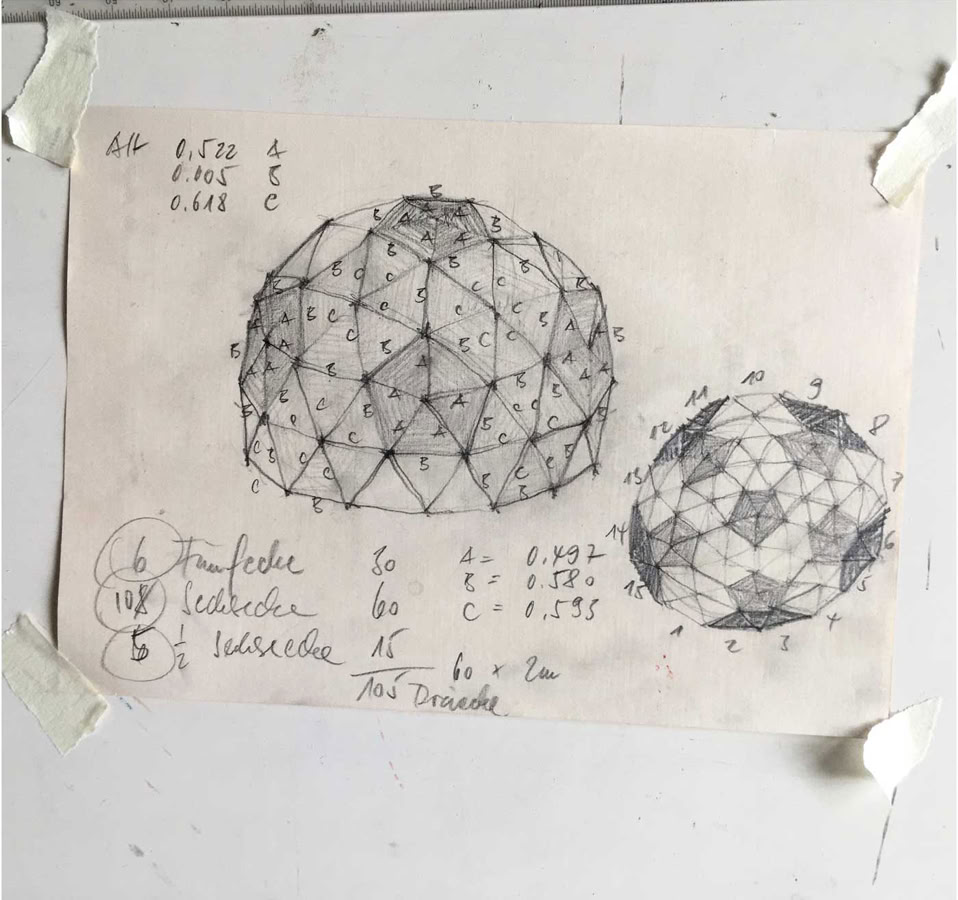 Alt 0,522 A
0.605 B
0.618 C
B
B A A B
B A A B
B C C B C C B
B B
A A B C C B C C B A A
B A A B B C C A B
A A B A A B A A
B B C C B
C A A B C C B
C B C C B C C B
C B B
11 10 9
12 8
13 7
14 6
15 5
1 2 3 4
6 Fünfecke 30 A = 0.497
10 Sechsecke 60 B = 0.580
5 1/2 Sechsecke 15 C = 0.593
105 Dreiecke 60 x 2m